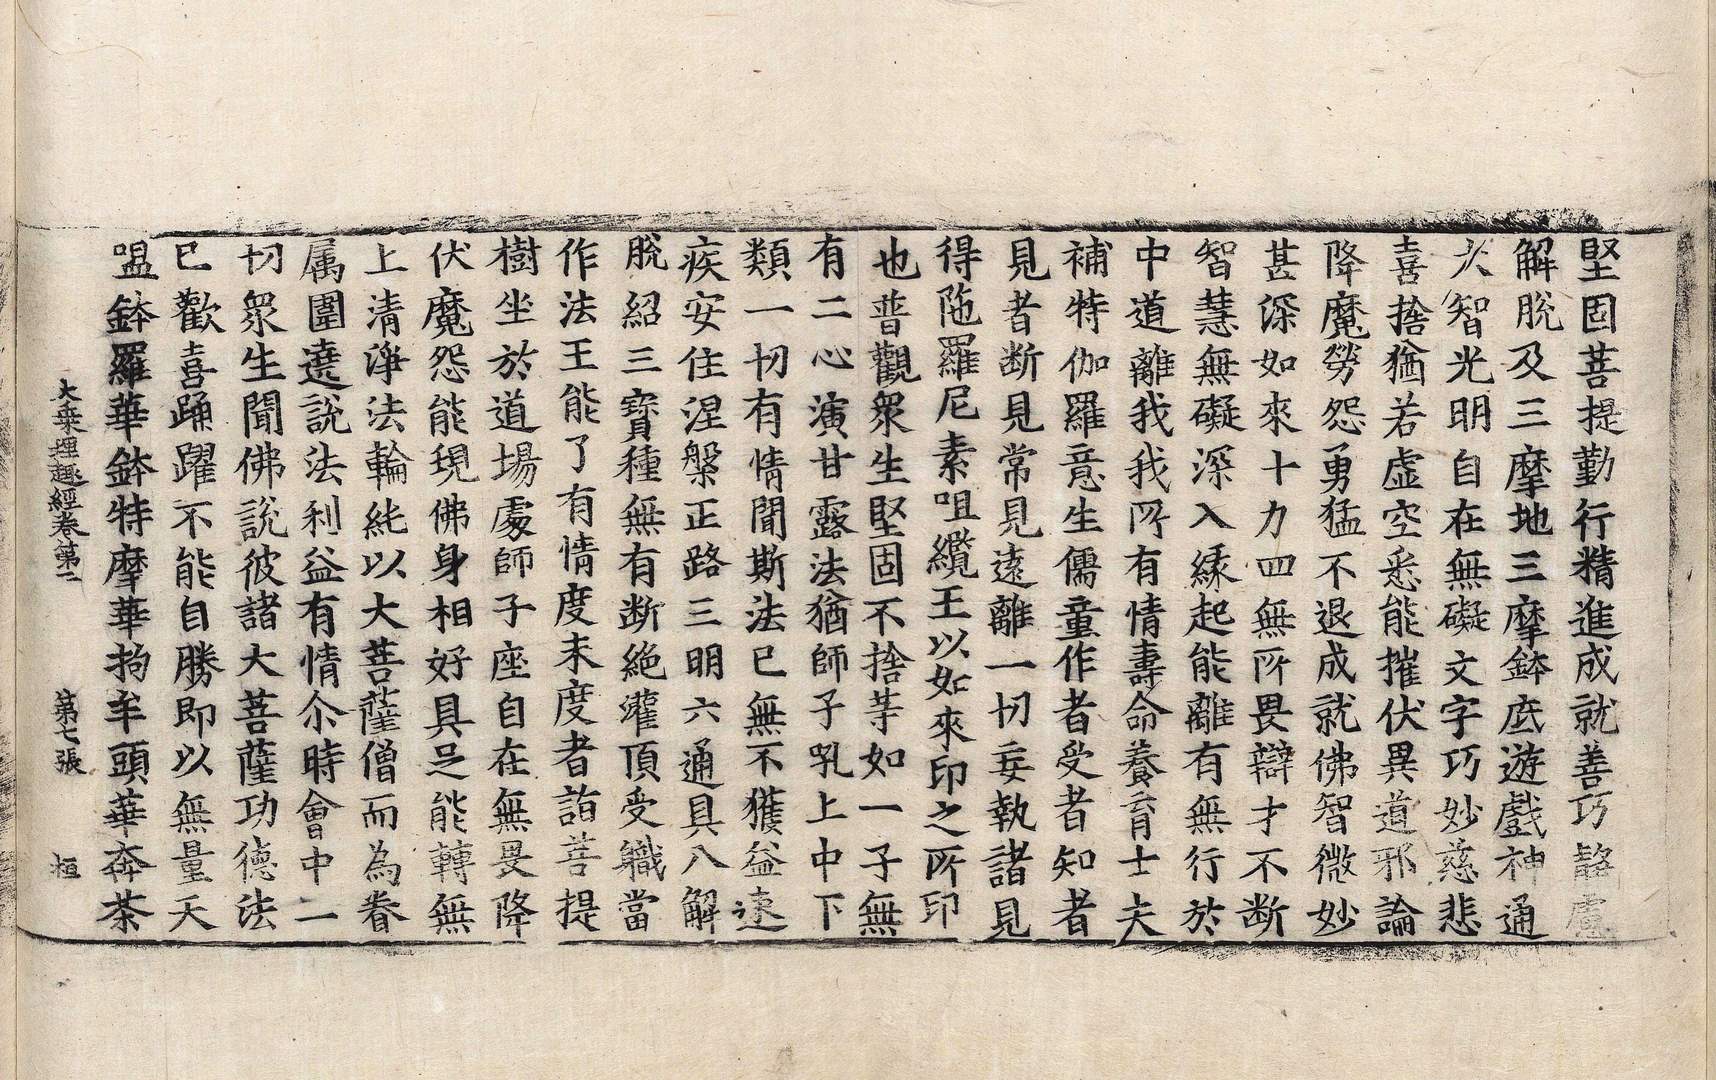 堅固菩提勤行精進成就善巧靜慮
解脫及三摩地三摩鉢底遊戲神通
大智光明自在無礙文字巧妙慈悲
喜捨猶若虛空悉能摧伏異道邪論
降魔勞怨勇猛不退成就佛智微妙
甚深如來十力四無所畏辯才不断
智慧無礙深入緣起能離有無行於
中道離我我所有情壽命養育士夫
補特伽羅意生儒童作者受者知者
見者断見常見遠離一切妄執諸見
得陁羅尼素咀纜王以如來印之所印
也普觀衆生堅固不捨等如一子無
有二心演甘露法猶師子乳上中下
類一切有情聞斯法已無不獲益速
疾安住涅槃正路三明六通具八解
脫紹三寶種無有断絶灌頂受軄當
作法王能了有情度未度者詣菩提
樹坐於道場處師子座自在無畏降
伏魔怨能現佛身相好具足能轉無
上清淨法輪純以大菩薩僧而為眷
属圍遶說法利益有情尒時會中一
切衆生聞佛說彼諸大菩薩功德法
已歡喜踊躍不能自勝即以無量天
嗢鉢羅華鉢特摩華拘牟頭華奔茶
大乘理趣經卷第二 第七張 桓